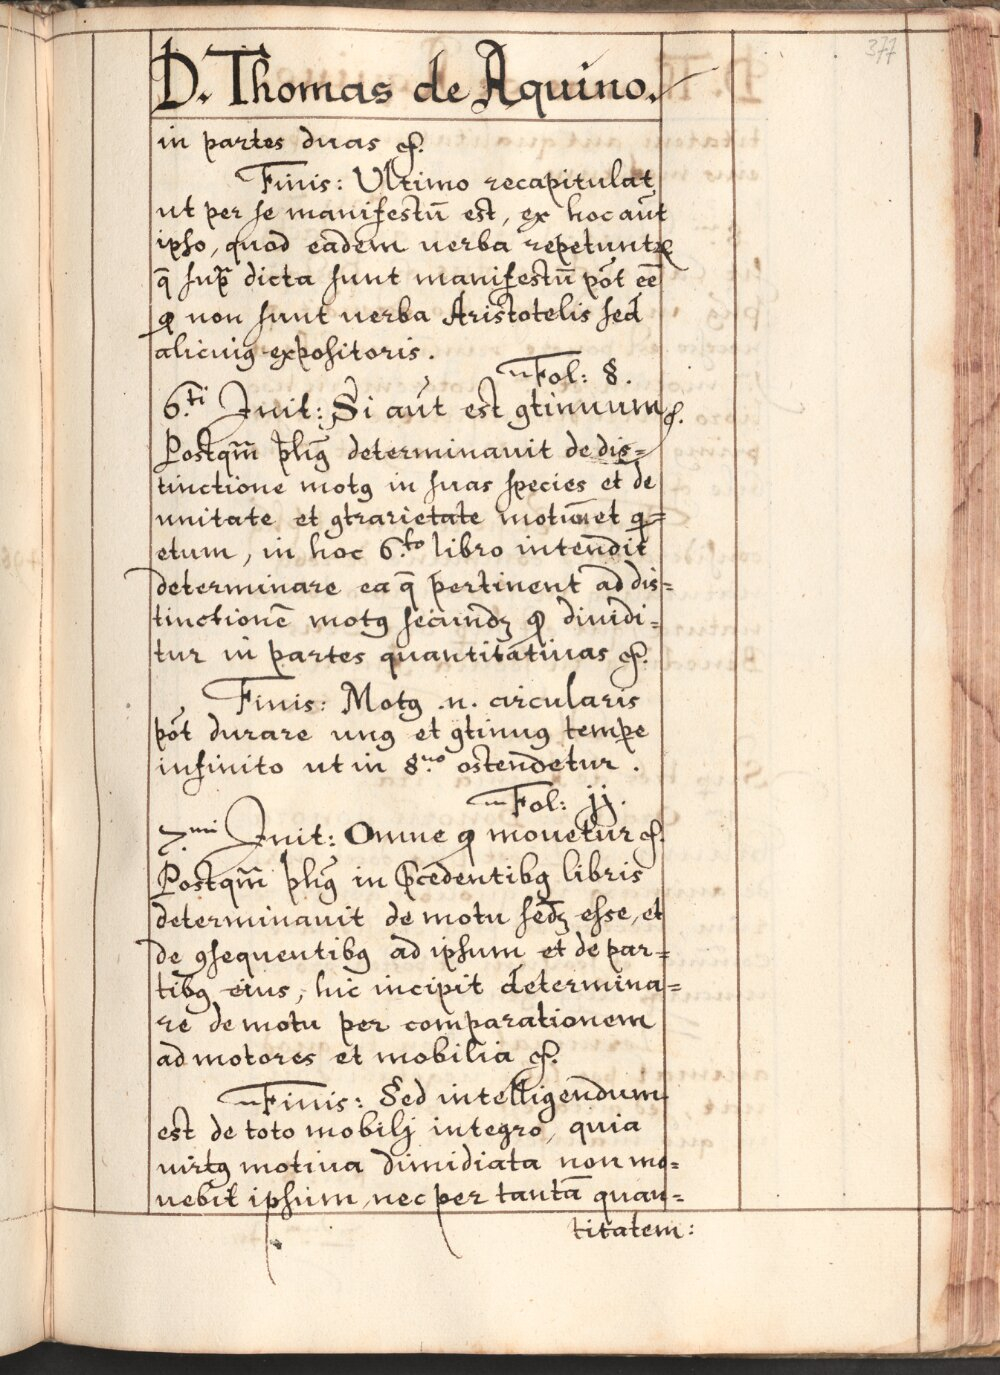 377
D. Thomas de Aquino.
in partes duas &.
Finis: Ultimo recapitulat
ut per se manifestũ est, ex hoc aũt
ipso, quod eadem verba repetuntꝝ
q̃ supr̃ dicta sunt manifestũ põt eẽ
ꝙ non sunt verba Aristotelis sed
alicuiꝰ expositoris.
Fol: 8.
6.ti Init: Si aũt est ꝯtinuum &.
Postqm̃ phũs determinavit de dis=
tinctione motꝰ in suas species et de
unitate et ꝯtrarietate motuũ et qi=
etum, in hoc 6.to libro intendit
determinare ea q̃ pertinent ad dis=
tinctionẽ motꝰ secundꝫ ꝙ dividi=
tur in partes quantitativas &.
Finis: Motꝰ .n. circularis
põt durare unꝰ et ꝯtinuꝰ tempe
infinito ut in 8.vo ostendetur.
Fol: jj.
7.mi Init: Omne ꝙ movetur &.
Postqm̃ phũs in p̃cedentibꝰ libris
determinavit de motu sedꝫ esse, et
de ꝯsequentibꝰ ad ipsum et de par=
tibꝰ eius, hic incipit determina=
re de motu per comparationem
ad motores et mobilia &.
Finis: Sed intelligendum
est de toto mobilj integro, quia
virtꝰ motiva dimidiata non mo=
vebit ipsum, nec per tantã quan=
titatem: